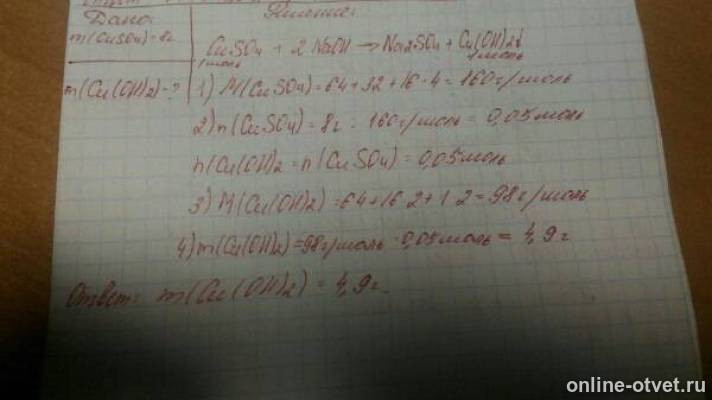 Дано:
Решение:
m(CuSO4)=8г
CuSO4 + 2 NaOH → Na2SO4 + Cu(OH)2↓
1моль 1моль
m(Cu(OH)2)-?
1) M(CuSO4)=64+32+16·4=160г/моль
2) n(CuSO4)=8г : 160г/моль = 0,05моль
n(Cu(OH)2 = n(CuSO4) = 0,05моль
3) M(Cu(OH)2) = 64+16·2+1·2=98г/моль
4) m(Cu(OH)2)=98г/моль · 0,05моль = 4,9г
Ответ: m(Cu(OH)2) = 4,9г.
online-otvet.ru